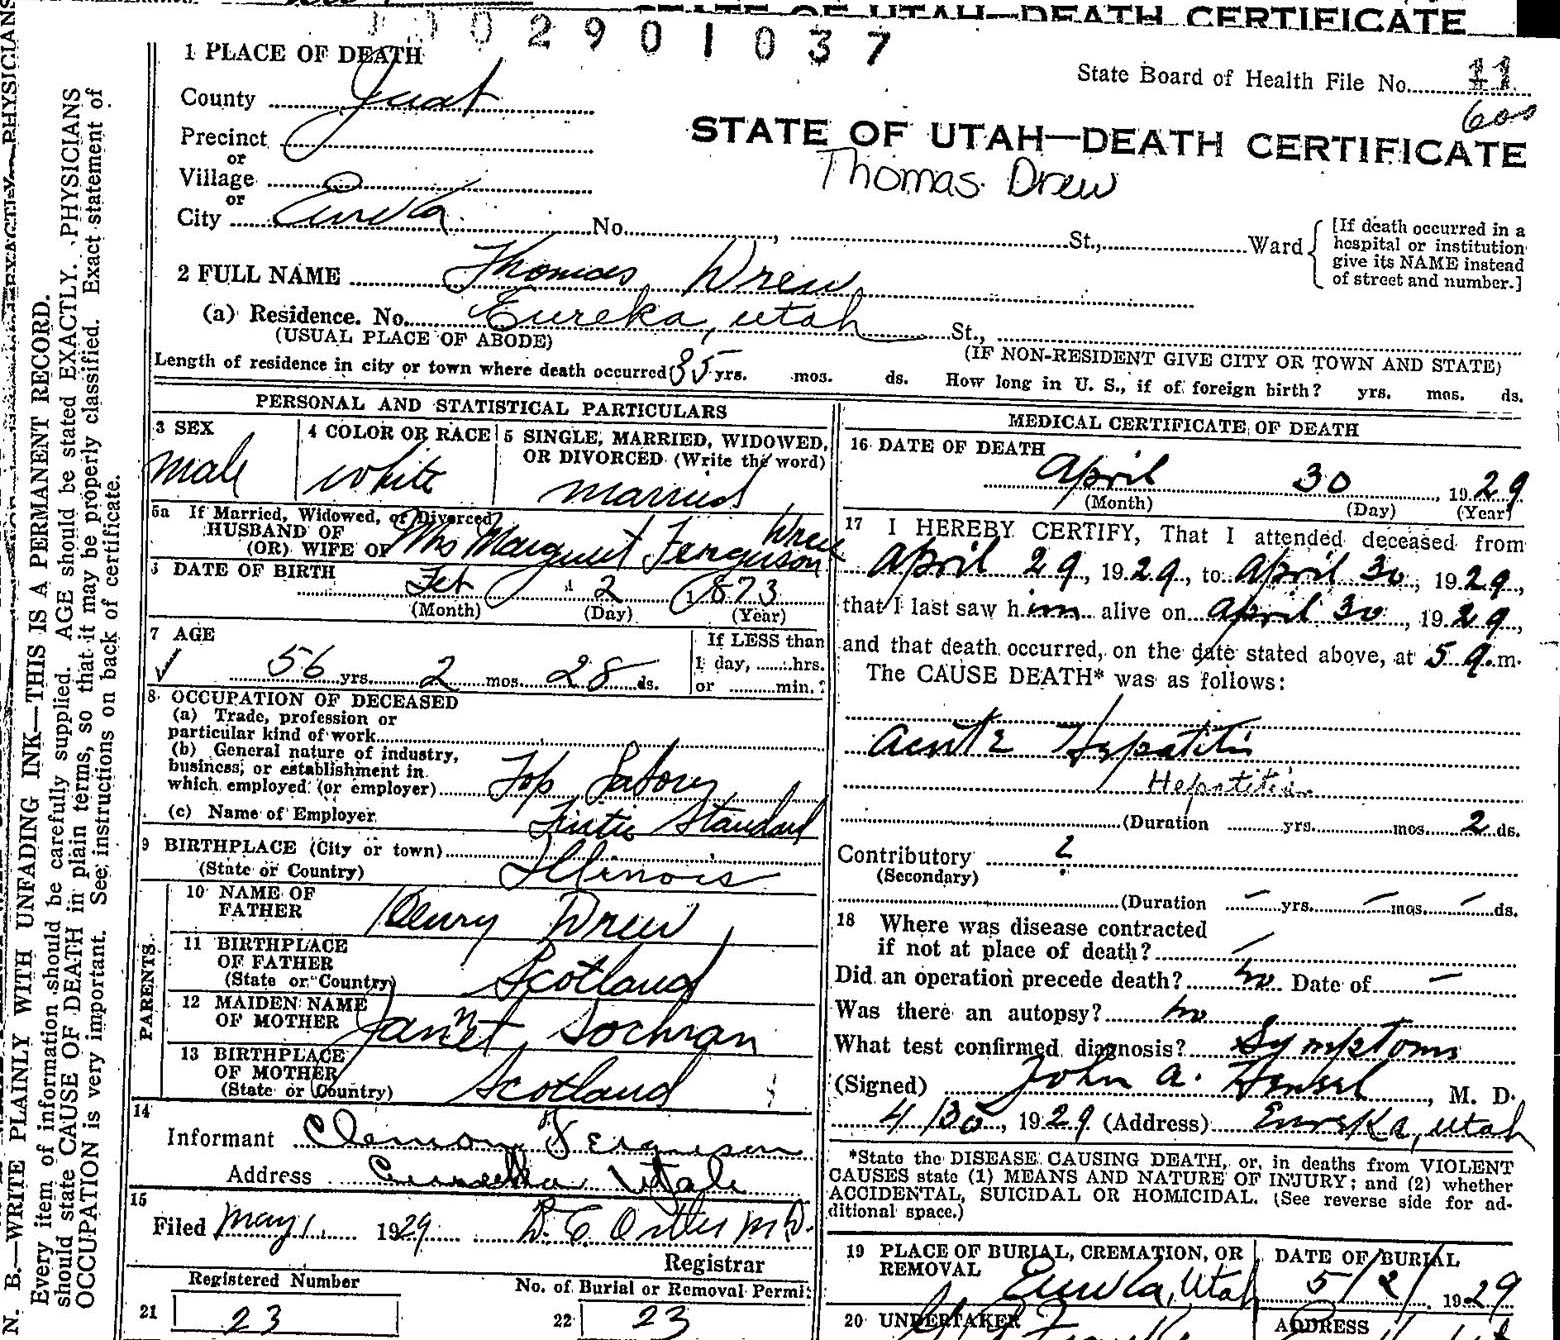 STATE OF UTAH—DEATH CERTIFICATE
002901037
1 PLACE OF DEATH
State Board of Health File No. 11
600
County Juab
STATE OF UTAH—DEATH CERTIFICATE
Thomas Drew
Precinct
or
Village
or
City Eureka No. , St., Ward
[If death occurred in a hospital or institution give its NAME instead of street and number.]
2 FULL NAME Thomas Drew
(a) Residence. No. Eureka, Utah St.,
(USUAL PLACE OF ABODE) (IF NON-RESIDENT GIVE CITY OR TOWN AND STATE)
Length of residence in city or town where death occurred 35 yrs. mos. ds. How long in U. S., if of foreign birth? yrs. mos. ds.
PERSONAL AND STATISTICAL PARTICULARS
3 SEX
male
4 COLOR OR RACE
white
5 SINGLE, MARRIED, WIDOWED, OR DIVORCED (Write the word)
married
5a If Married, Widowed, or Divorced
HUSBAND OF
(OR) WIFE OF Mrs Margaret Ferguson Drew
6 DATE OF BIRTH
Feb 2 1873
(Month) (Day) (Year)
7 AGE
56 yrs. 2 mos. 28 ds.
If LESS than
1 day, hrs.
or min.?
8 OCCUPATION OF DECEASED
(a) Trade, profession or
particular kind of work
(b) General nature of industry,
business, or establishment in
which employed (or employer) Top Labor
(c) Name of Employer Tintic Standard
9 BIRTHPLACE (City or town)
(State or Country) Illinois
PARENTS
10 NAME OF
FATHER Henry Drew
11 BIRTHPLACE
OF FATHER
(State or Country) Scotland
12 MAIDEN NAME
OF MOTHER Janet Sochran
13 BIRTHPLACE
OF MOTHER
(State or Country) Scotland
14
Informant Ferguson
Address Utah
15
Filed May 1 1929 M.D.
Registrar
Registered Number
21 23
No. of Burial or Removal Permit
22 23
MEDICAL CERTIFICATE OF DEATH
16 DATE OF DEATH
April 30, 1929
(Month) (Day) (Year)
17 I HEREBY CERTIFY, That I attended deceased from
April 29, 1929, to April 30, 1929,
that I last saw him alive on April 30, 1929,
and that death occurred, on the date stated above, at 5 a.m.
The CAUSE DEATH* was as follows:
Acute Hepatitis
Hepatitis
(Duration yrs. mos. 2 ds.
Contributory ?
(Secondary)
(Duration — yrs. — mos. — ds.
18 Where was disease contracted
if not at place of death? —
Did an operation precede death? no Date of —
Was there an autopsy? no
What test confirmed diagnosis? Symptoms
(Signed) John A. Hensel, M. D.
4/30, 1929 (Address) Eureka, Utah
*State the DISEASE CAUSING DEATH, or, in deaths from VIOLENT
CAUSES state (1) MEANS AND NATURE OF INJURY; and (2) whether
ACCIDENTAL, SUICIDAL OR HOMICIDAL. (See reverse side for ad-
ditional space.)
19 PLACE OF BURIAL, CREMATION, OR
REMOVAL Eureka, Utah
DATE OF BURIAL
5/2/1929
20 UNDERTAKER
ADDRESS
N. B.—WRITE PLAINLY WITH UNFADING INK—THIS IS A PERMANENT RECORD.
Every item of information should be carefully supplied. AGE should be stated EXACTLY. PHYSICIANS
should state CAUSE OF DEATH in plain terms, so that it may be properly classified. Exact statement of
OCCUPATION is very important. See instructions on back of certificate.